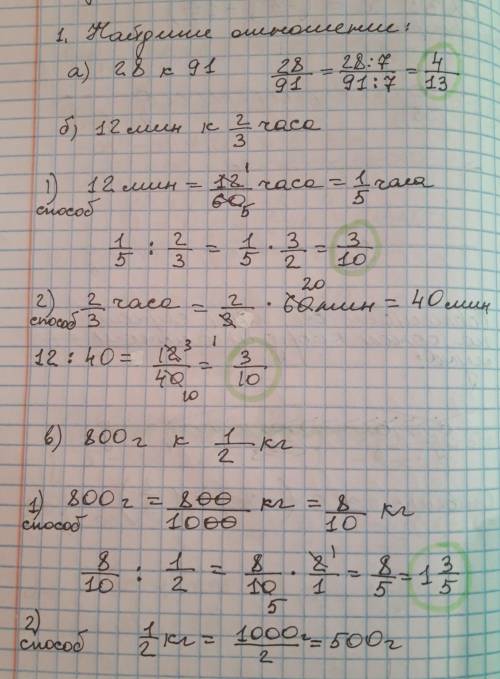 1. Найдите отношение:
а) 28 к 91 28/91 = 28:7/91:7 = 4/13
б) 12 мин к 2/3 часа
1) способ 12 мин = 12/60 часа = 1/5 часа
1/5 : 2/3 = 1/5 · 3/2 = 3/10
2) способ 2/3 часа = 2/3 · 60 мин = 40 мин
12 : 40 = 12/40 = 3/10
в) 800 г к 1/2 кг
1) способ 800 г = 800/1000 кг = 8/10 кг
8/10 : 1/2 = 8/10 · 2/1 = 8/5 = 1 3/5
2) способ 1/2 кг = 1000 г/2 = 500 г